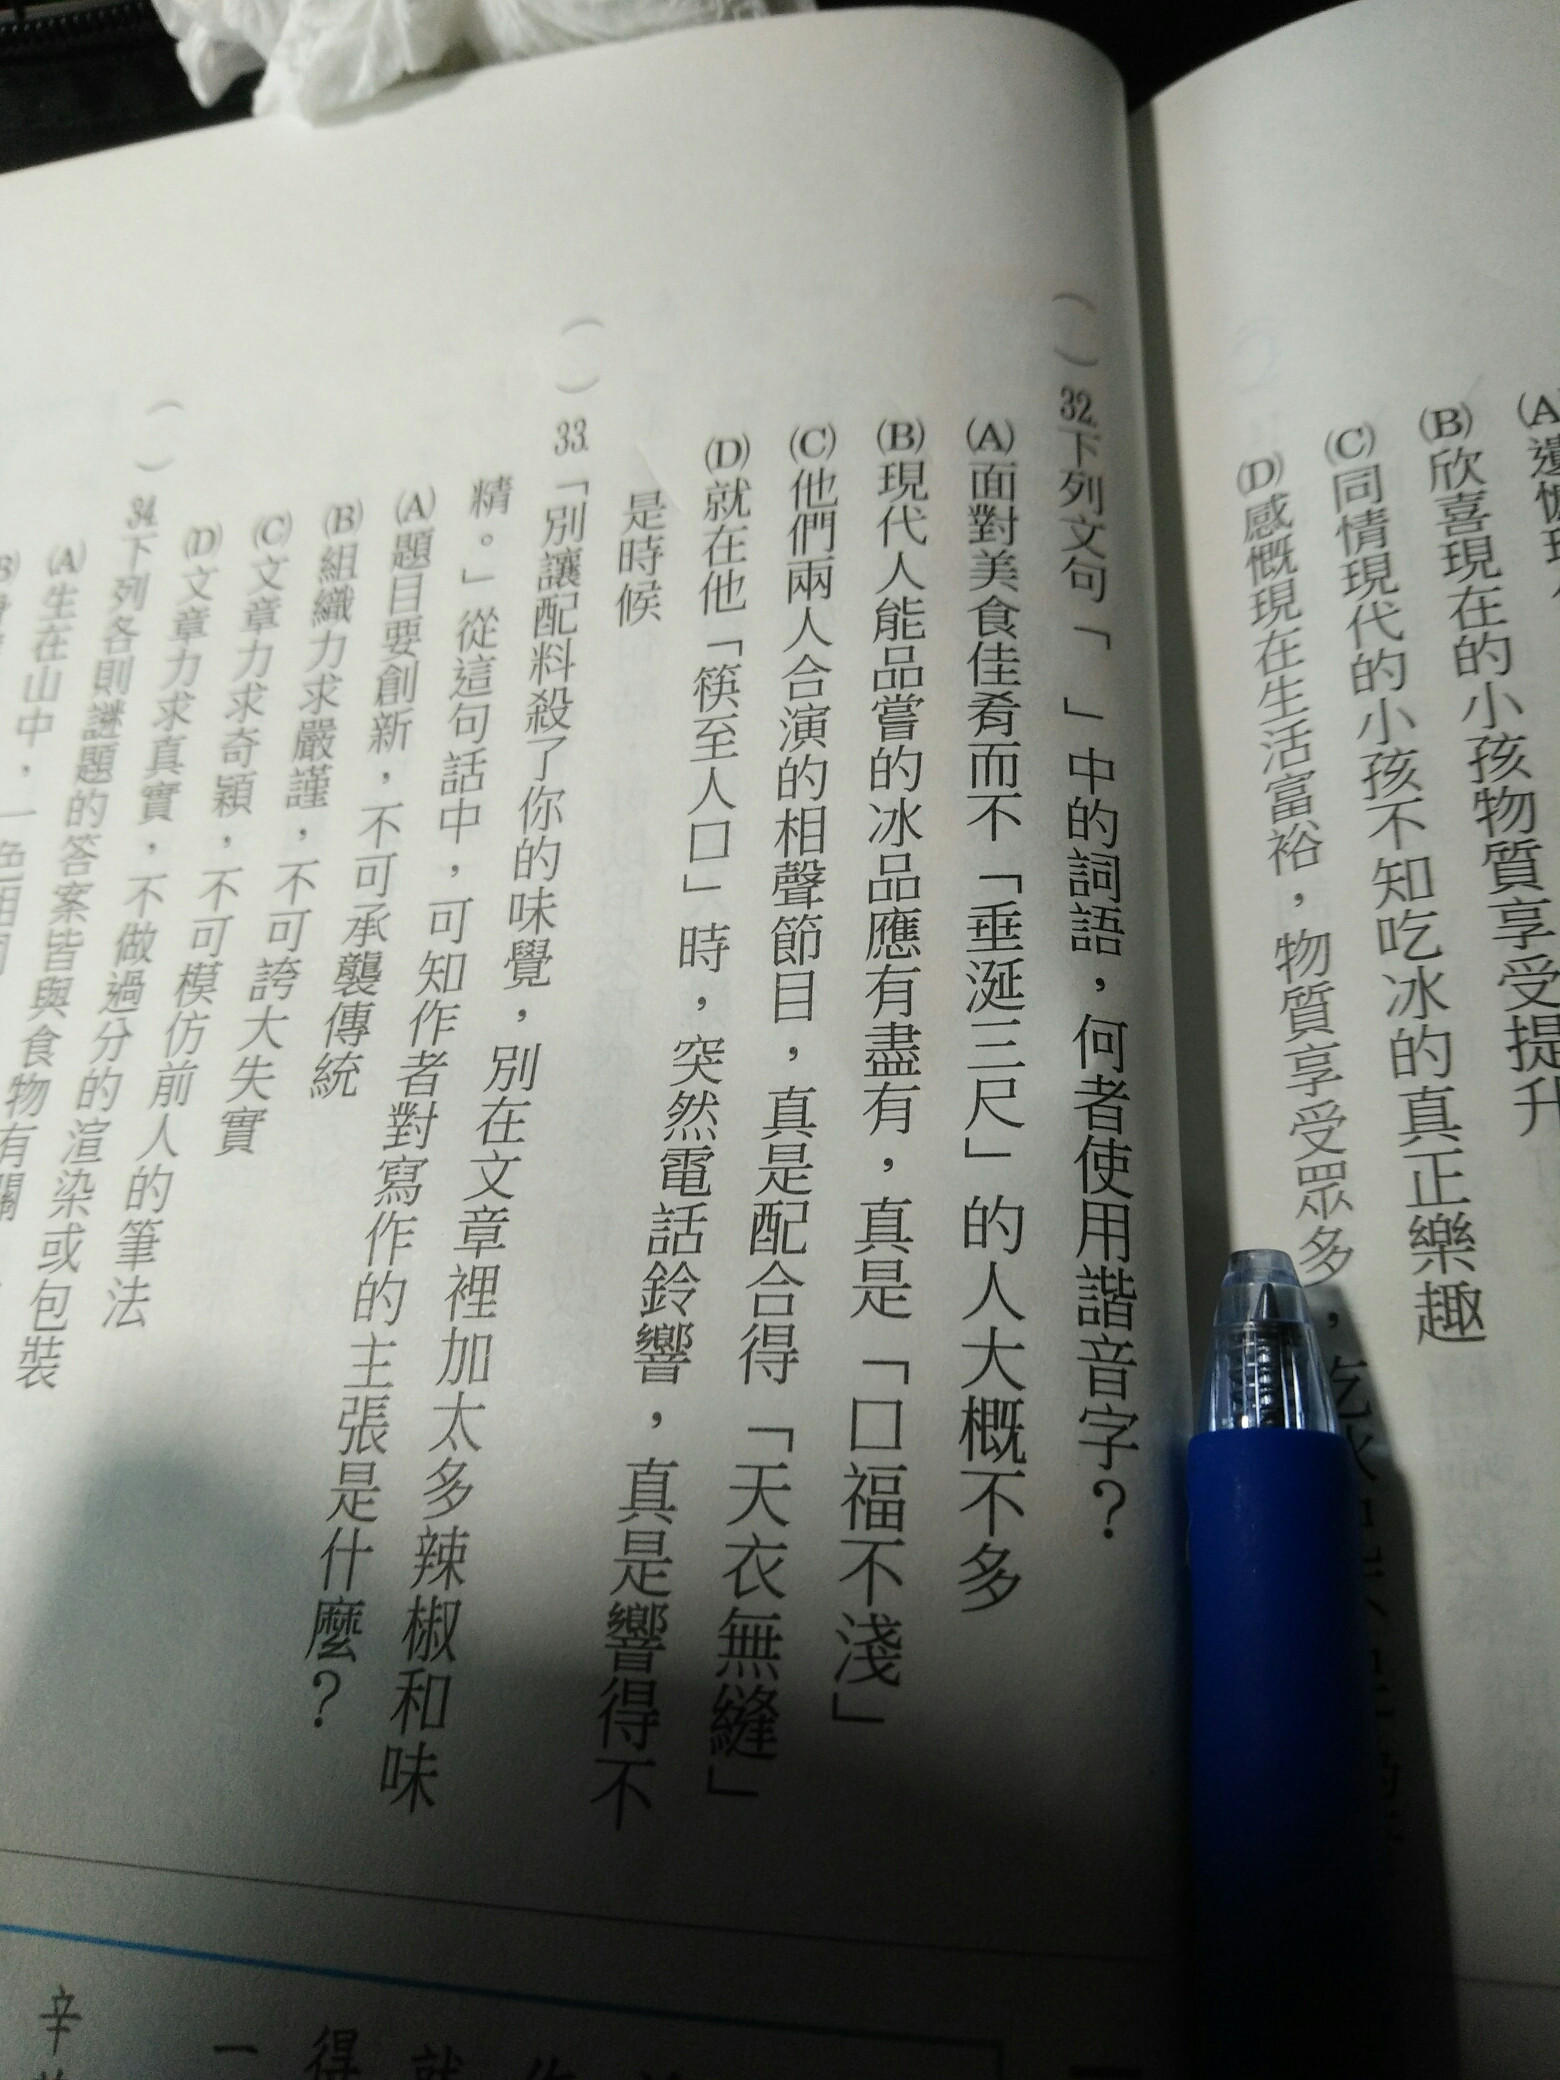 (B)欣喜現在的小孩物質享受提升
(C)同情現代的小孩不知吃冰的真正樂趣
(D)感慨現在生活富裕，物質享受眾多，吃冰
( )32.下列文句「　」中的詞語，何者使用諧音字？
(A)面對美食佳肴而不「垂涎三尺」的人大概不多
(B)現代人能品嘗的冰品應有盡有，真是「口福不淺」
(C)他們兩人合演的相聲節目，真是配合得「天衣無縫」
(D)就在他「筷至人口」時，突然電話鈴響，真是響得不
是時候
( )33.「別讓配料殺了你的味覺，別在文章裡加太多辣椒和味
精。」從這句話中，可知作者對寫作的主張是什麼？
(A)題目要創新，不可承襲傳統
(B)組織力求嚴謹，不可誇大失實
(C)文章力求奇穎，不可模仿前人的筆法
(D)文章力求真實，不做過分的渲染或包裝
( )34.下列各則謎題的答案皆與食物有關
(A)生在山中，一色相同
辛
一
得
就